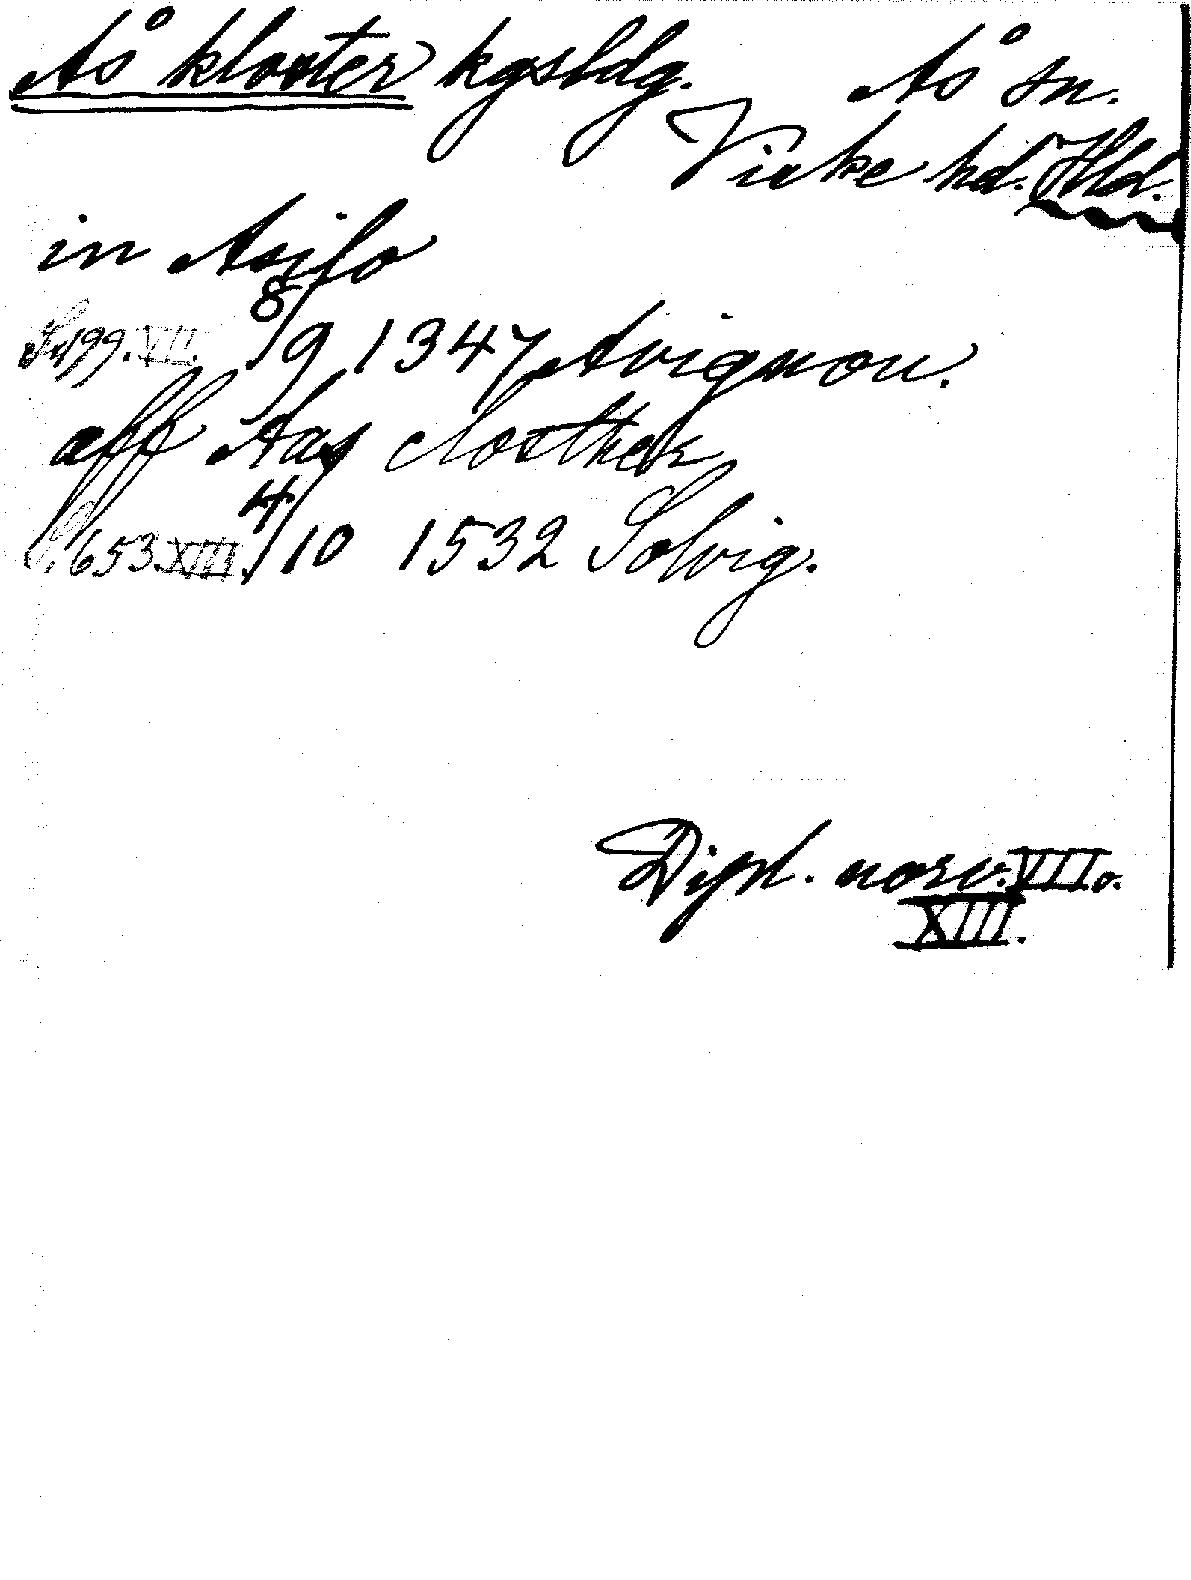 Ås kloster kgsldg. Ås sn.
Viske hd. Hld.
in Asilo
S. 199. VII. 8/9 1347 Avignon.
aff Aas closther
S. 653. XIII. 4/10 1532 Solvig.
Dipl. norv. VII o.
XIII.